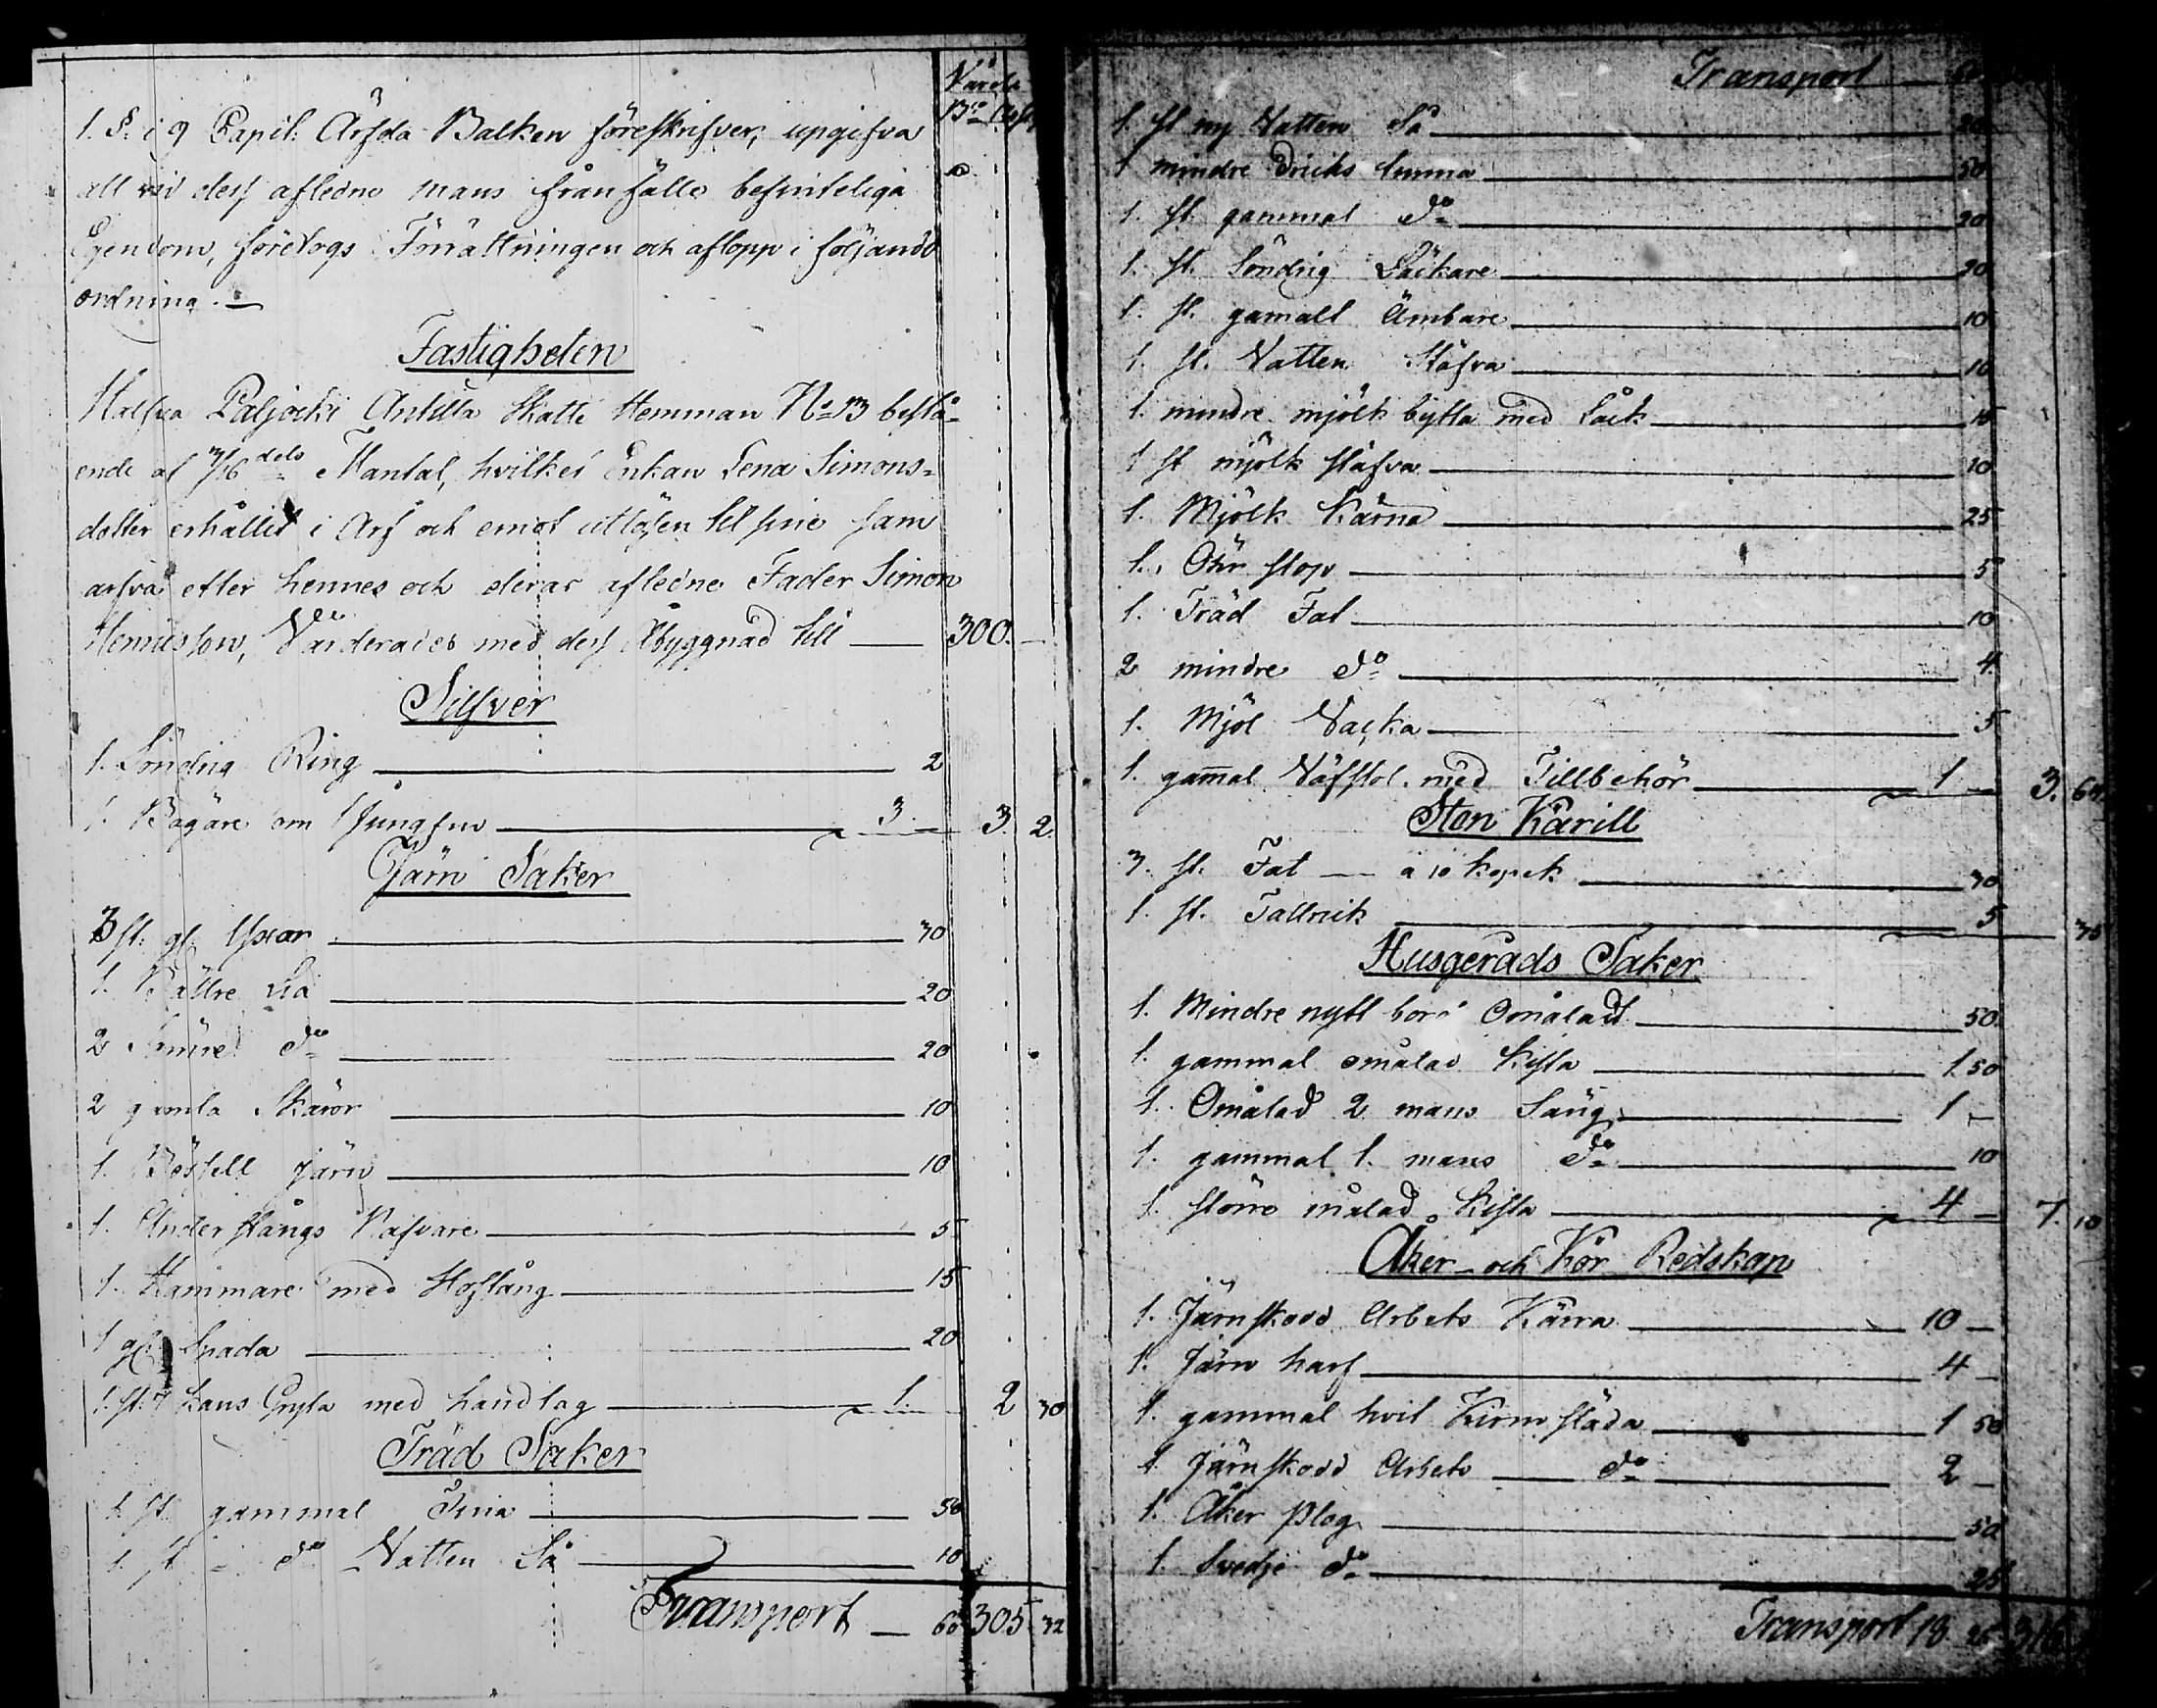 Värde
B:co Ass:
1. §. i 9 Capit: Ärfda Balken föreskrifver, upgifva
all vid dess afledne mans frånfälle befinteliga
Egendom, företogs Förrättningen och aflopp i följande
ordning. —
Fastigheten
Halfva Paljocki Anttila Skatte Hemman No 13 bestå-
ende af 7/16 dels Mantal, hvilket Enkan Lena Simons=
dotter erhållit i Arf och emot utlösen till sine sam
arfva efter hennes och deras afledne Fader Simon
Henricsson, Värderades med dess Åbyggnad till — 300. —
Silfver
1. Söndrig Ring — 2
1. Bägare om 1 Jungfru — 3. — 3. 2.
Järn Saker
3 st: gl. Yxor — 30
1. Bättre Lia — 20
2 Sämre do — 20
2 gamla Skäror — 10
1. järn — 10
1. Understångs Nafvare — 5
1. Hammare med Hoftång — 15
1 gl. Spada — 20
1. st: Kans Gryta med handtag — 1. — 2 30
Träd Saker
1. st. gammal Tina — 50
1. st - do Vatten Så — 10
Transport — 60 305 32
Transport — 60
1. st ny Vatten Så — 20
1 mindre Dricks tunna — 50
1. st. gammal do — 20
1. st. Söndrig — 20
1. st. gamalt Ämbare — 10
1. st. Vatten Stäfva — 10
1. mindre mjölk bytta med Låck — 15
1 st mjölk stäfva — 10
1. Mjölk Kärna — 25
1. stop — 5
1. Träd Fat — 10
2 mindre do — 4
1. Mjöl Vacka — 5
1. gamal Väfstol med Tillbehör — 1 — 3. 64
Sten Kärill
3. st. Fat — à 10 kopek — 30
1. st. Tallrick — 5 35
Husgeråds Saker
1. Mindre nytt bord Omålad — 50
1. gammal omålad Kista — 1.50
1. Omålad 2 mans Säng — 1 —
1. gammal 1. mans do — 10
1. större målad Kista — 4 — 7. 10
Åker och Kör Redskap
1. Järnskodd Arbets Kärra — 10 —
1. Järn harf — 4 —
1. gammal Släda — 1 50
1. Järnskodd Arbets — do — 2 —
1. Åker plog — 50
1. Svedje do — 25
Transport 18. 25 316